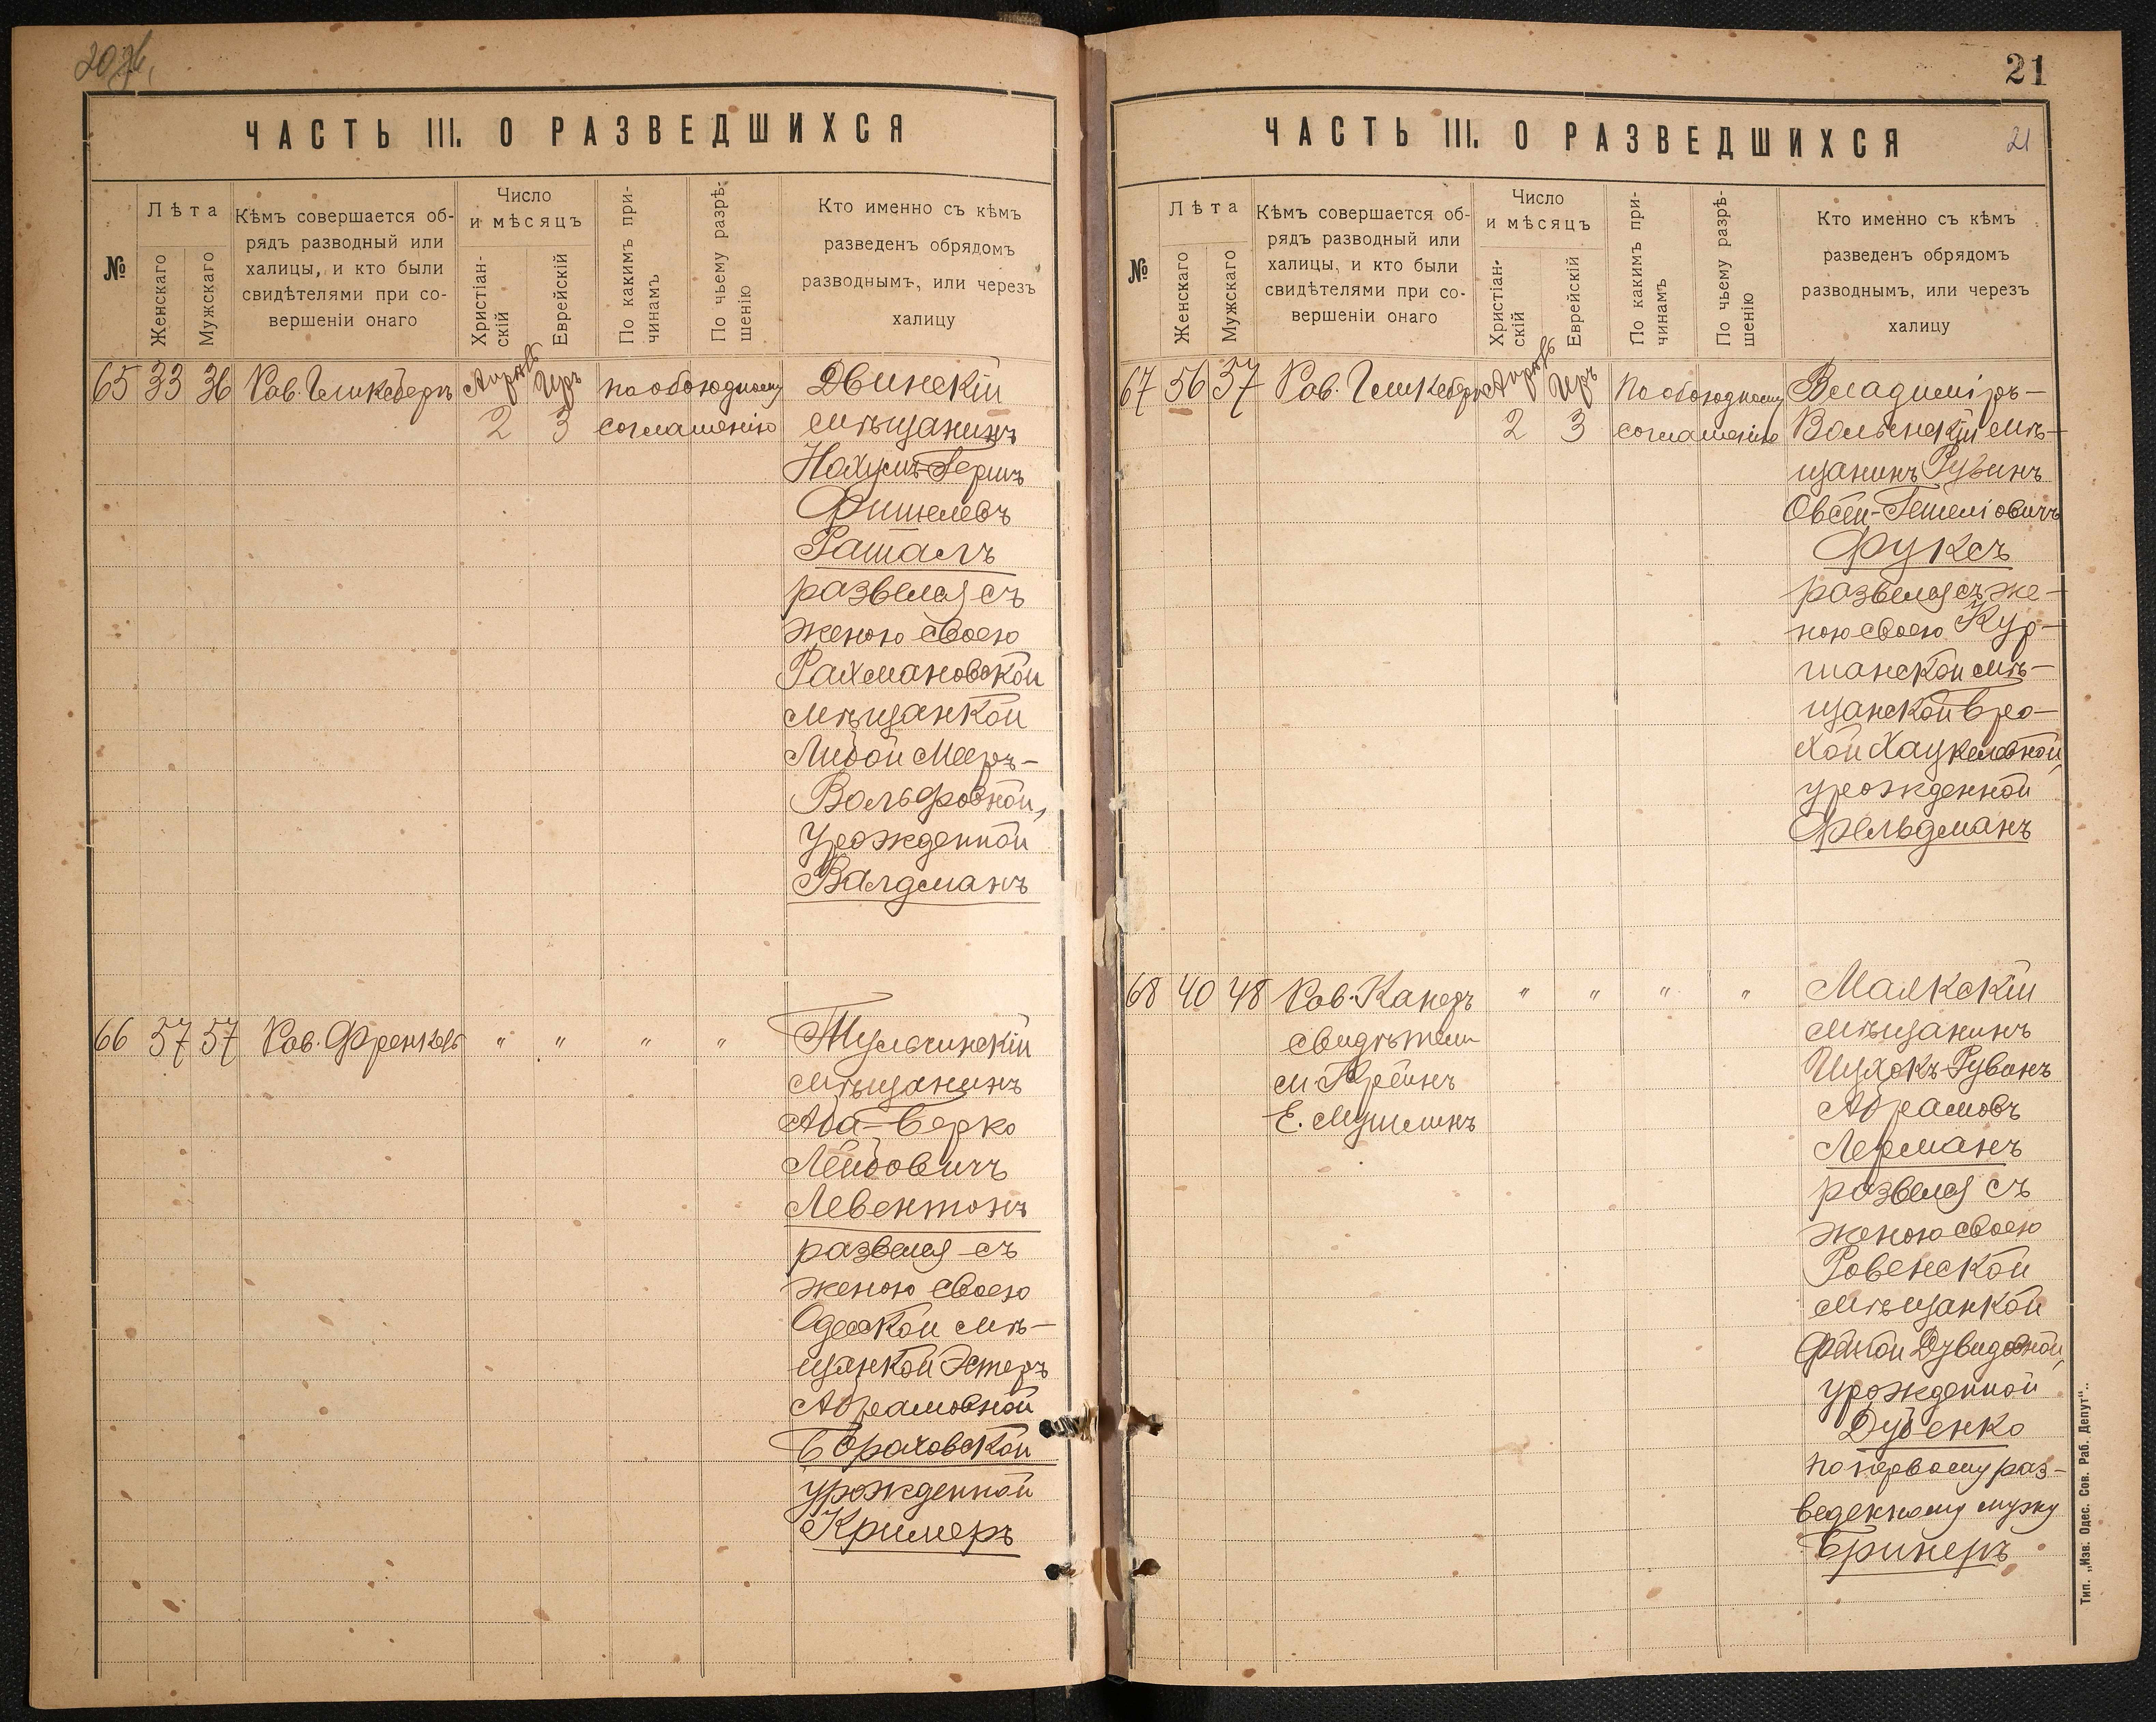 21
ЧАСТЬ III. О РАЗВЕДШИХСЯ
№
Лѣта
Женскаго
Мужскаго
Кѣмъ совершается об-
рядъ разводный или
халицы, и кто были
свидѣтелями при со-
вершеніи онаго
Число
и мѣсяцъ
Христіан-
скій
Еврейскій
По какимъ при-
чинамъ
По чьему разрѣ-
шенію
Кто именно съ кѣмъ
разведенъ обрядомъ
разводнымъ, или черезъ
халицу
65 33 36 Рав. Гликсбергъ Апрѣль Іиръ по обоюдному Двинскій
2 3 соглашенію мѣщанинъ
Нохумъ-Гершъ
Фишелевъ
Рашалъ
развелся съ
женою своею
Рахмановской
мѣщанкой
Либой Мееръ-
Вольфовной,
урожденной
Валдманъ
66 57 57 Рав. Френкель " " " " Тульчинскій
мѣщанинъ
Аба-Берко
Лейбовичъ
Левентонъ
развелся съ
женою своею
Одесской мѣ-
щанкой Эстеръ
Абрамовной
Бораховской
урожденной
Кримеръ
ЧАСТЬ III. О РАЗВЕДШИХСЯ 21
№
Лѣта
Женскаго
Мужскаго
Кѣмъ совершается об-
рядъ разводный или
халицы, и кто были
свидѣтелями при со-
вершеніи онаго
Число
и мѣсяцъ
Христіан-
скій
Еврейскій
По какимъ при-
чинамъ
По чьему разрѣ-
шенію
Кто именно съ кѣмъ
разведенъ обрядомъ
разводнымъ, или черезъ
халицу
67 56 57 Рав. Гликсбергъ Апрѣль Іиръ По обоюдному Владиміръ-
2 3 соглашенію Волынскій мѣ-
щанинъ Рувинъ
Овсей-Гешеліовичъ
Фуксъ
развелся съ же-
ною своею Кур-
шанской мѣ-
щанской Бро-
хой Хацкелевной,
урожденной
Фельдманъ
68 40 48 Рав. Канеръ " " " " Маякскій
свидѣтели мѣщанинъ
М. Крейнъ Ицхокъ-Рувинъ
Е. Мушлинъ Абрамовъ
Лерманъ
развелся съ
женою своею
Ровенской
мѣщанкой
Фаней Дувидовной,
урожденной
Дубенко
по первому раз-
веденному мужу
Бринеръ
Тип. „Изв. Одес. Сов. Раб. Депут“..